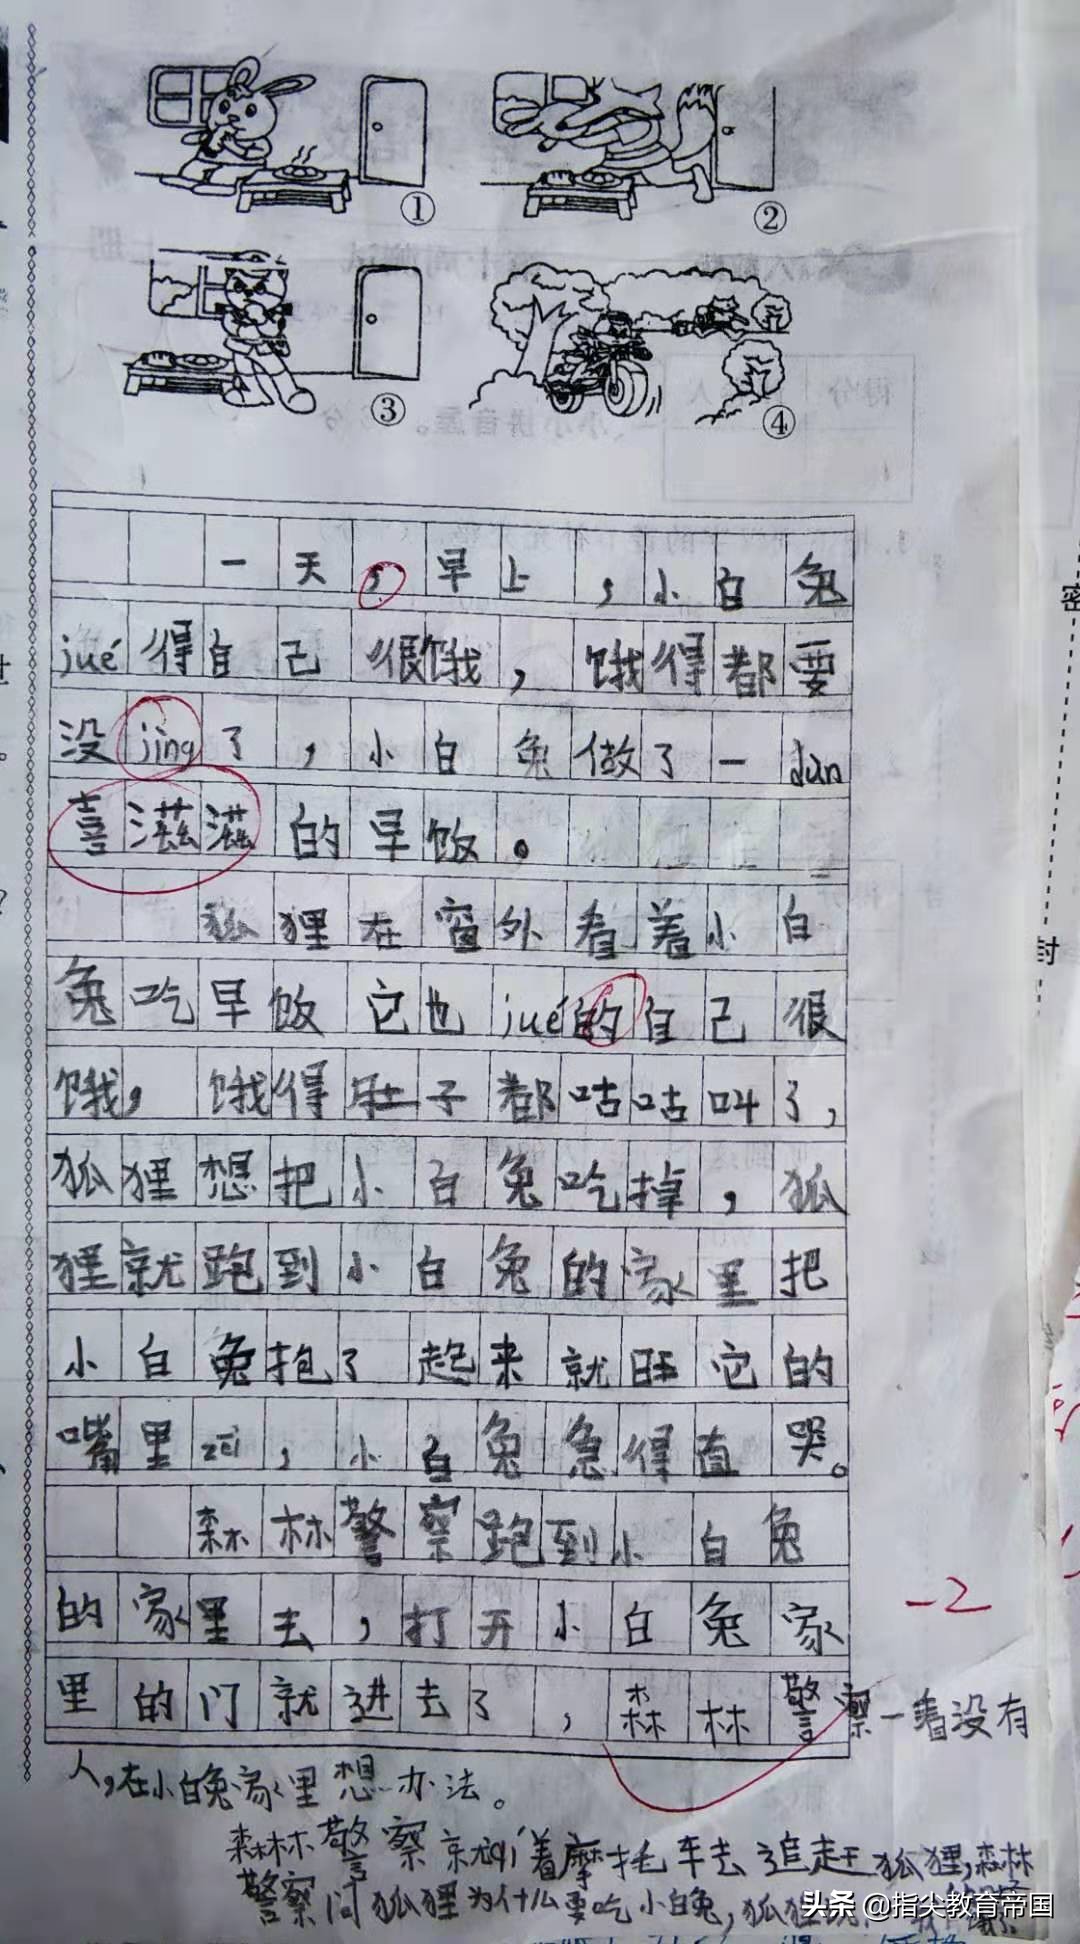 ①
②
③
④
一天，早上，小白兔
jué得自己很饿，饿得都要
没jìng了，小白兔做了一dùn
喜滋滋的早饭。
狐狸在窗外看着小白
兔吃早饭它也jué的自己很
饿，饿得肚子都咕咕叫了，
狐狸想把小白兔吃掉，狐
狸就跑到小白兔的家里把
小白兔抱了起来就旺它的
嘴里，小白兔急得直哭。
森林警察跑到小白兔
的家里去，打开小白兔家
里的门就进去了，森林警察一看没有
人，在小白兔家里想办法。
-2
森林警察就着摩托车去追赶狐狸，森林
警察问狐狸为什么要吃小白兔，狐狸说
头条 @指尖教育帝国
密
封